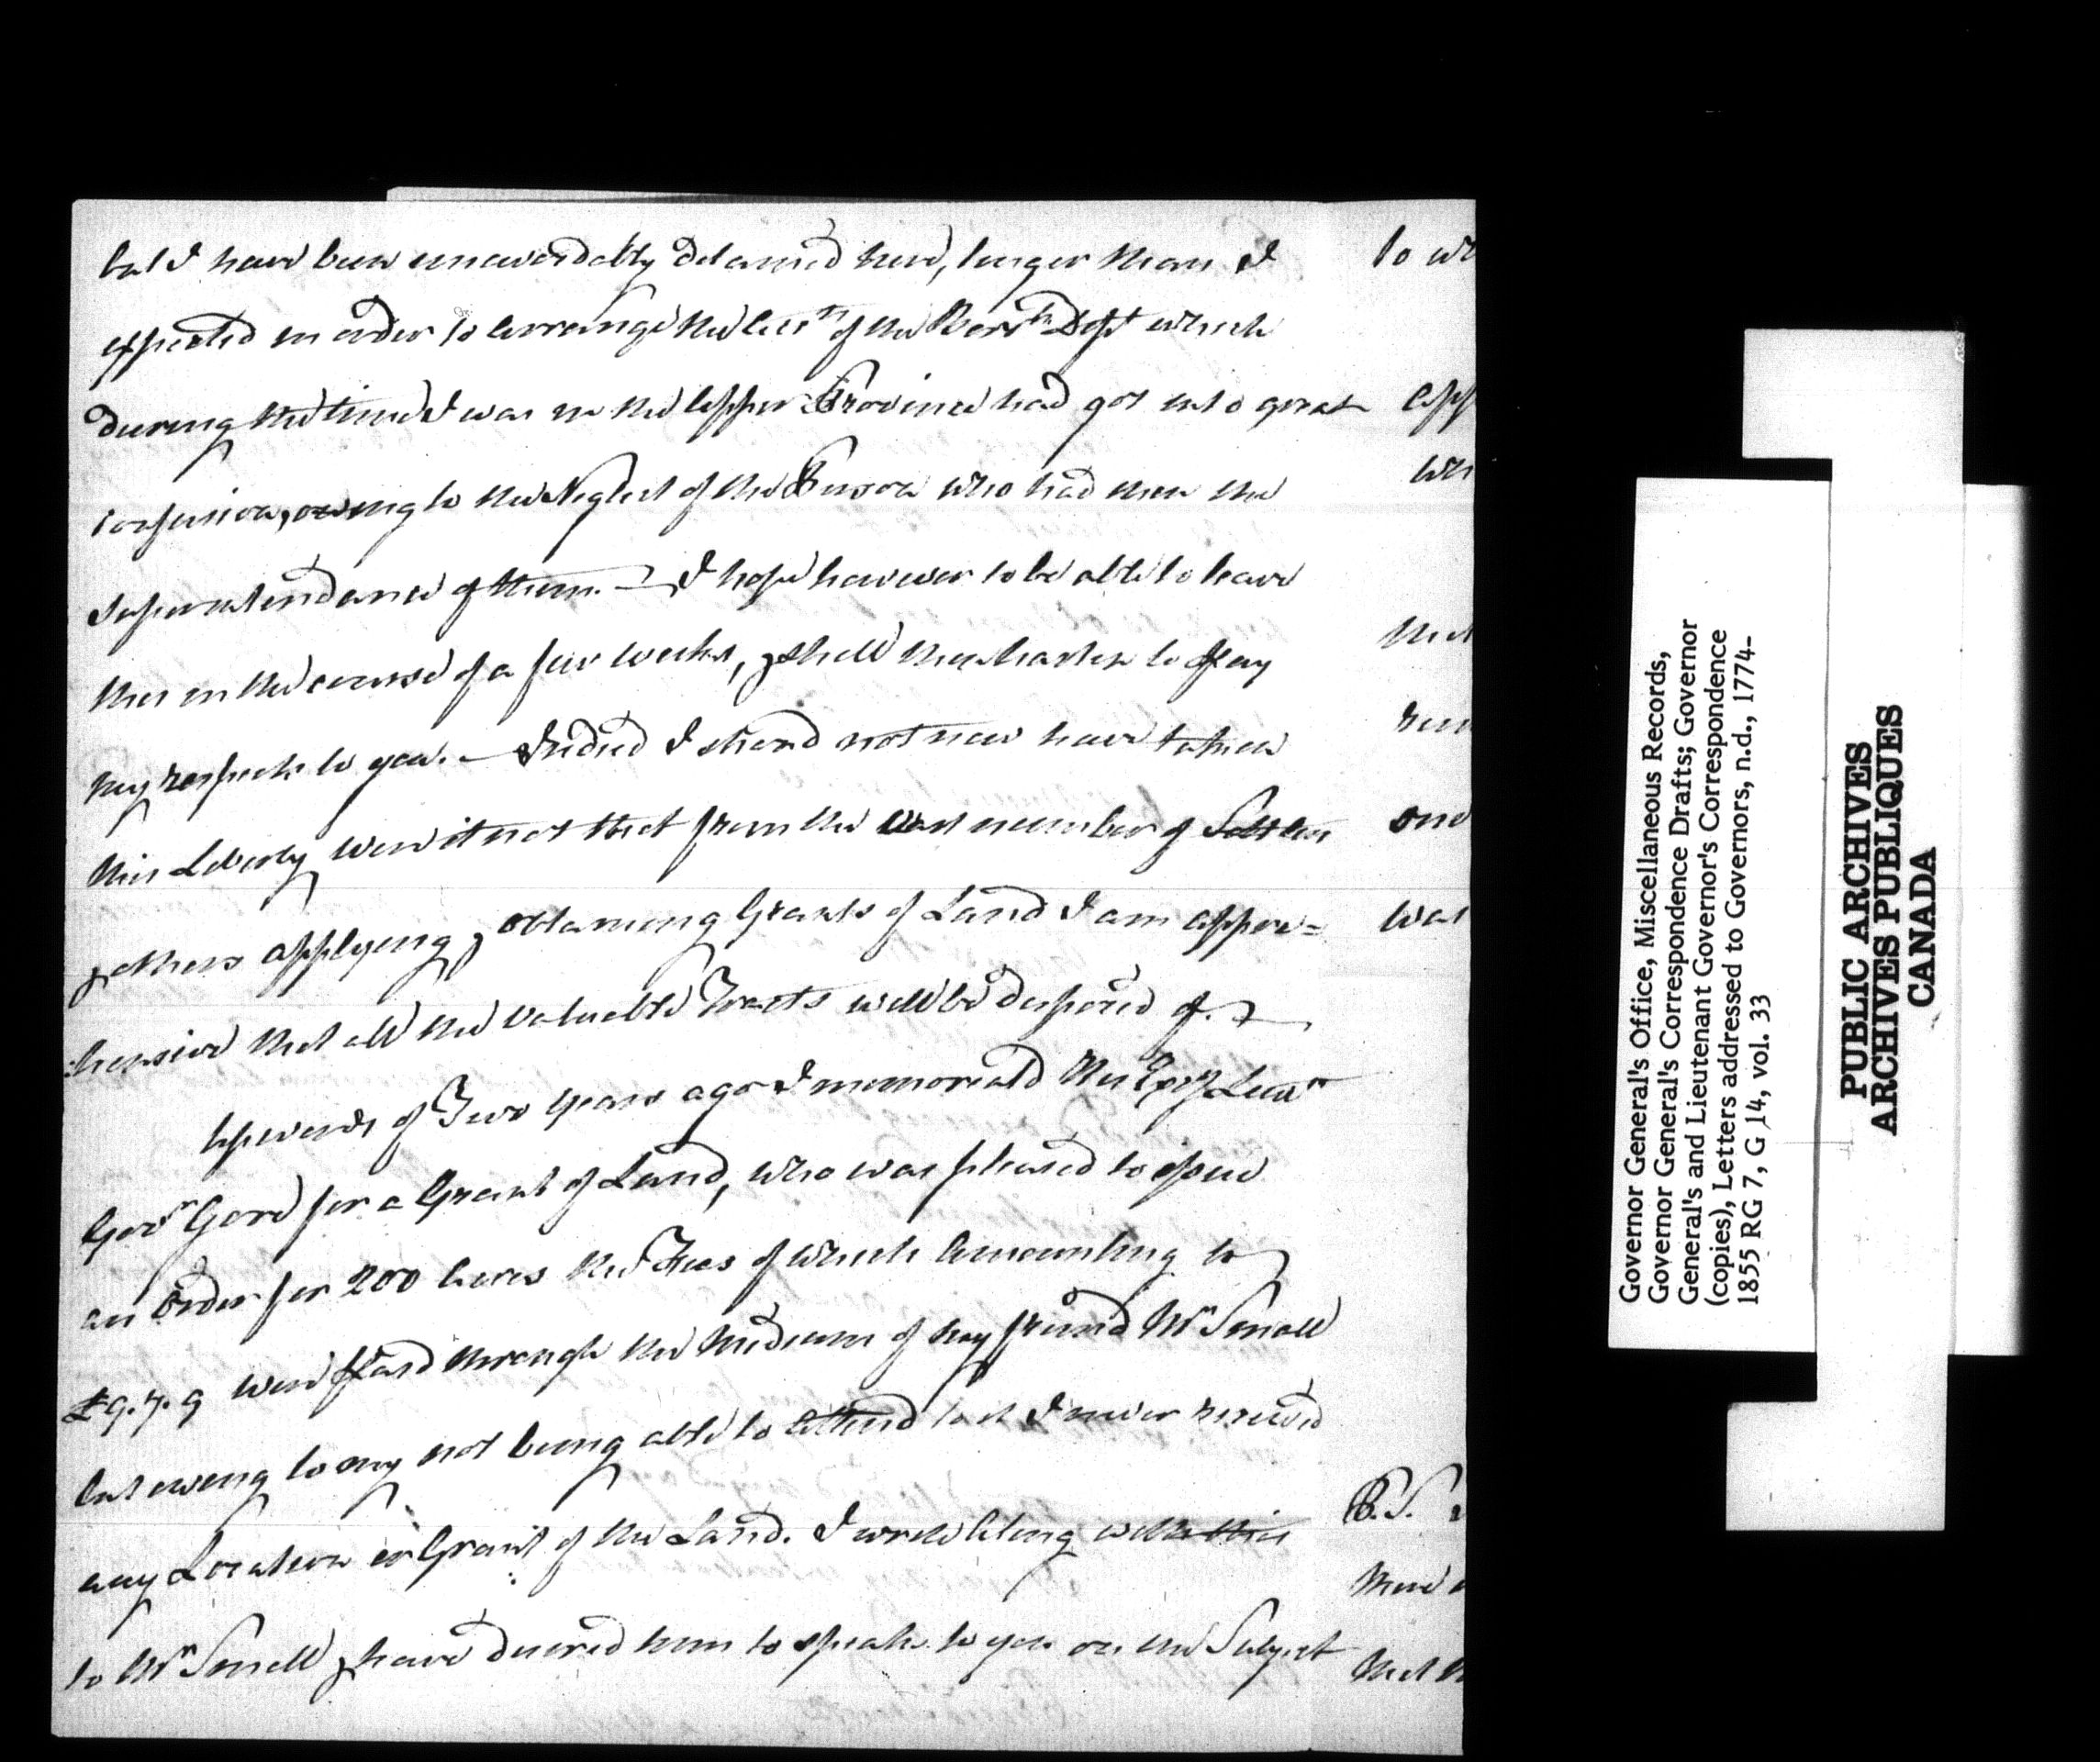 but I have been unavoidably detained here, longer than I
expected in order to arrange the Acc.ts of the Barr.k Dept which
during the time I was in the Upper Province had got into great
confusion, owing to the Neglect of the Person who had then the
Superintendance of them. — I hope however to be able to leave
this in the course of a few weeks, & shall then hasten to pay
my respects to you. — Indeed I should not now have taken
this Liberty were it not that from the vast number of Settlers
& others applying & obtaining Grants of Land I am appre=
hensive that all the valuable Tracts will be disposed of. —
Upwards of Two years ago I memoriald His Exy Lieut
Govr Gore for a Grant of Land, who was pleased to issue
an Order for 200 Acres the Fees of which Amounting to
£9.7.9 were paid through the Medium of my friend Mr Small
but owing to my not being able to attend to it I never received
any Location or Grant of the Land. I write along with this
to Mr Small & have desired him to speak to you on the Subject
to wh
App
wh
that
rem
one
was
P.S.
there
that
Governor General's Office, Miscellaneous Records,
Governor General's Correspondence Drafts; Governor
General's and Lieutenant Governor's Correspondence
(copies), Letters addressed to Governors, n.d., 1774-
1855 RG 7, G 14, vol. 33
PUBLIC ARCHIVES
ARCHIVES PUBLIQUES
CANADA